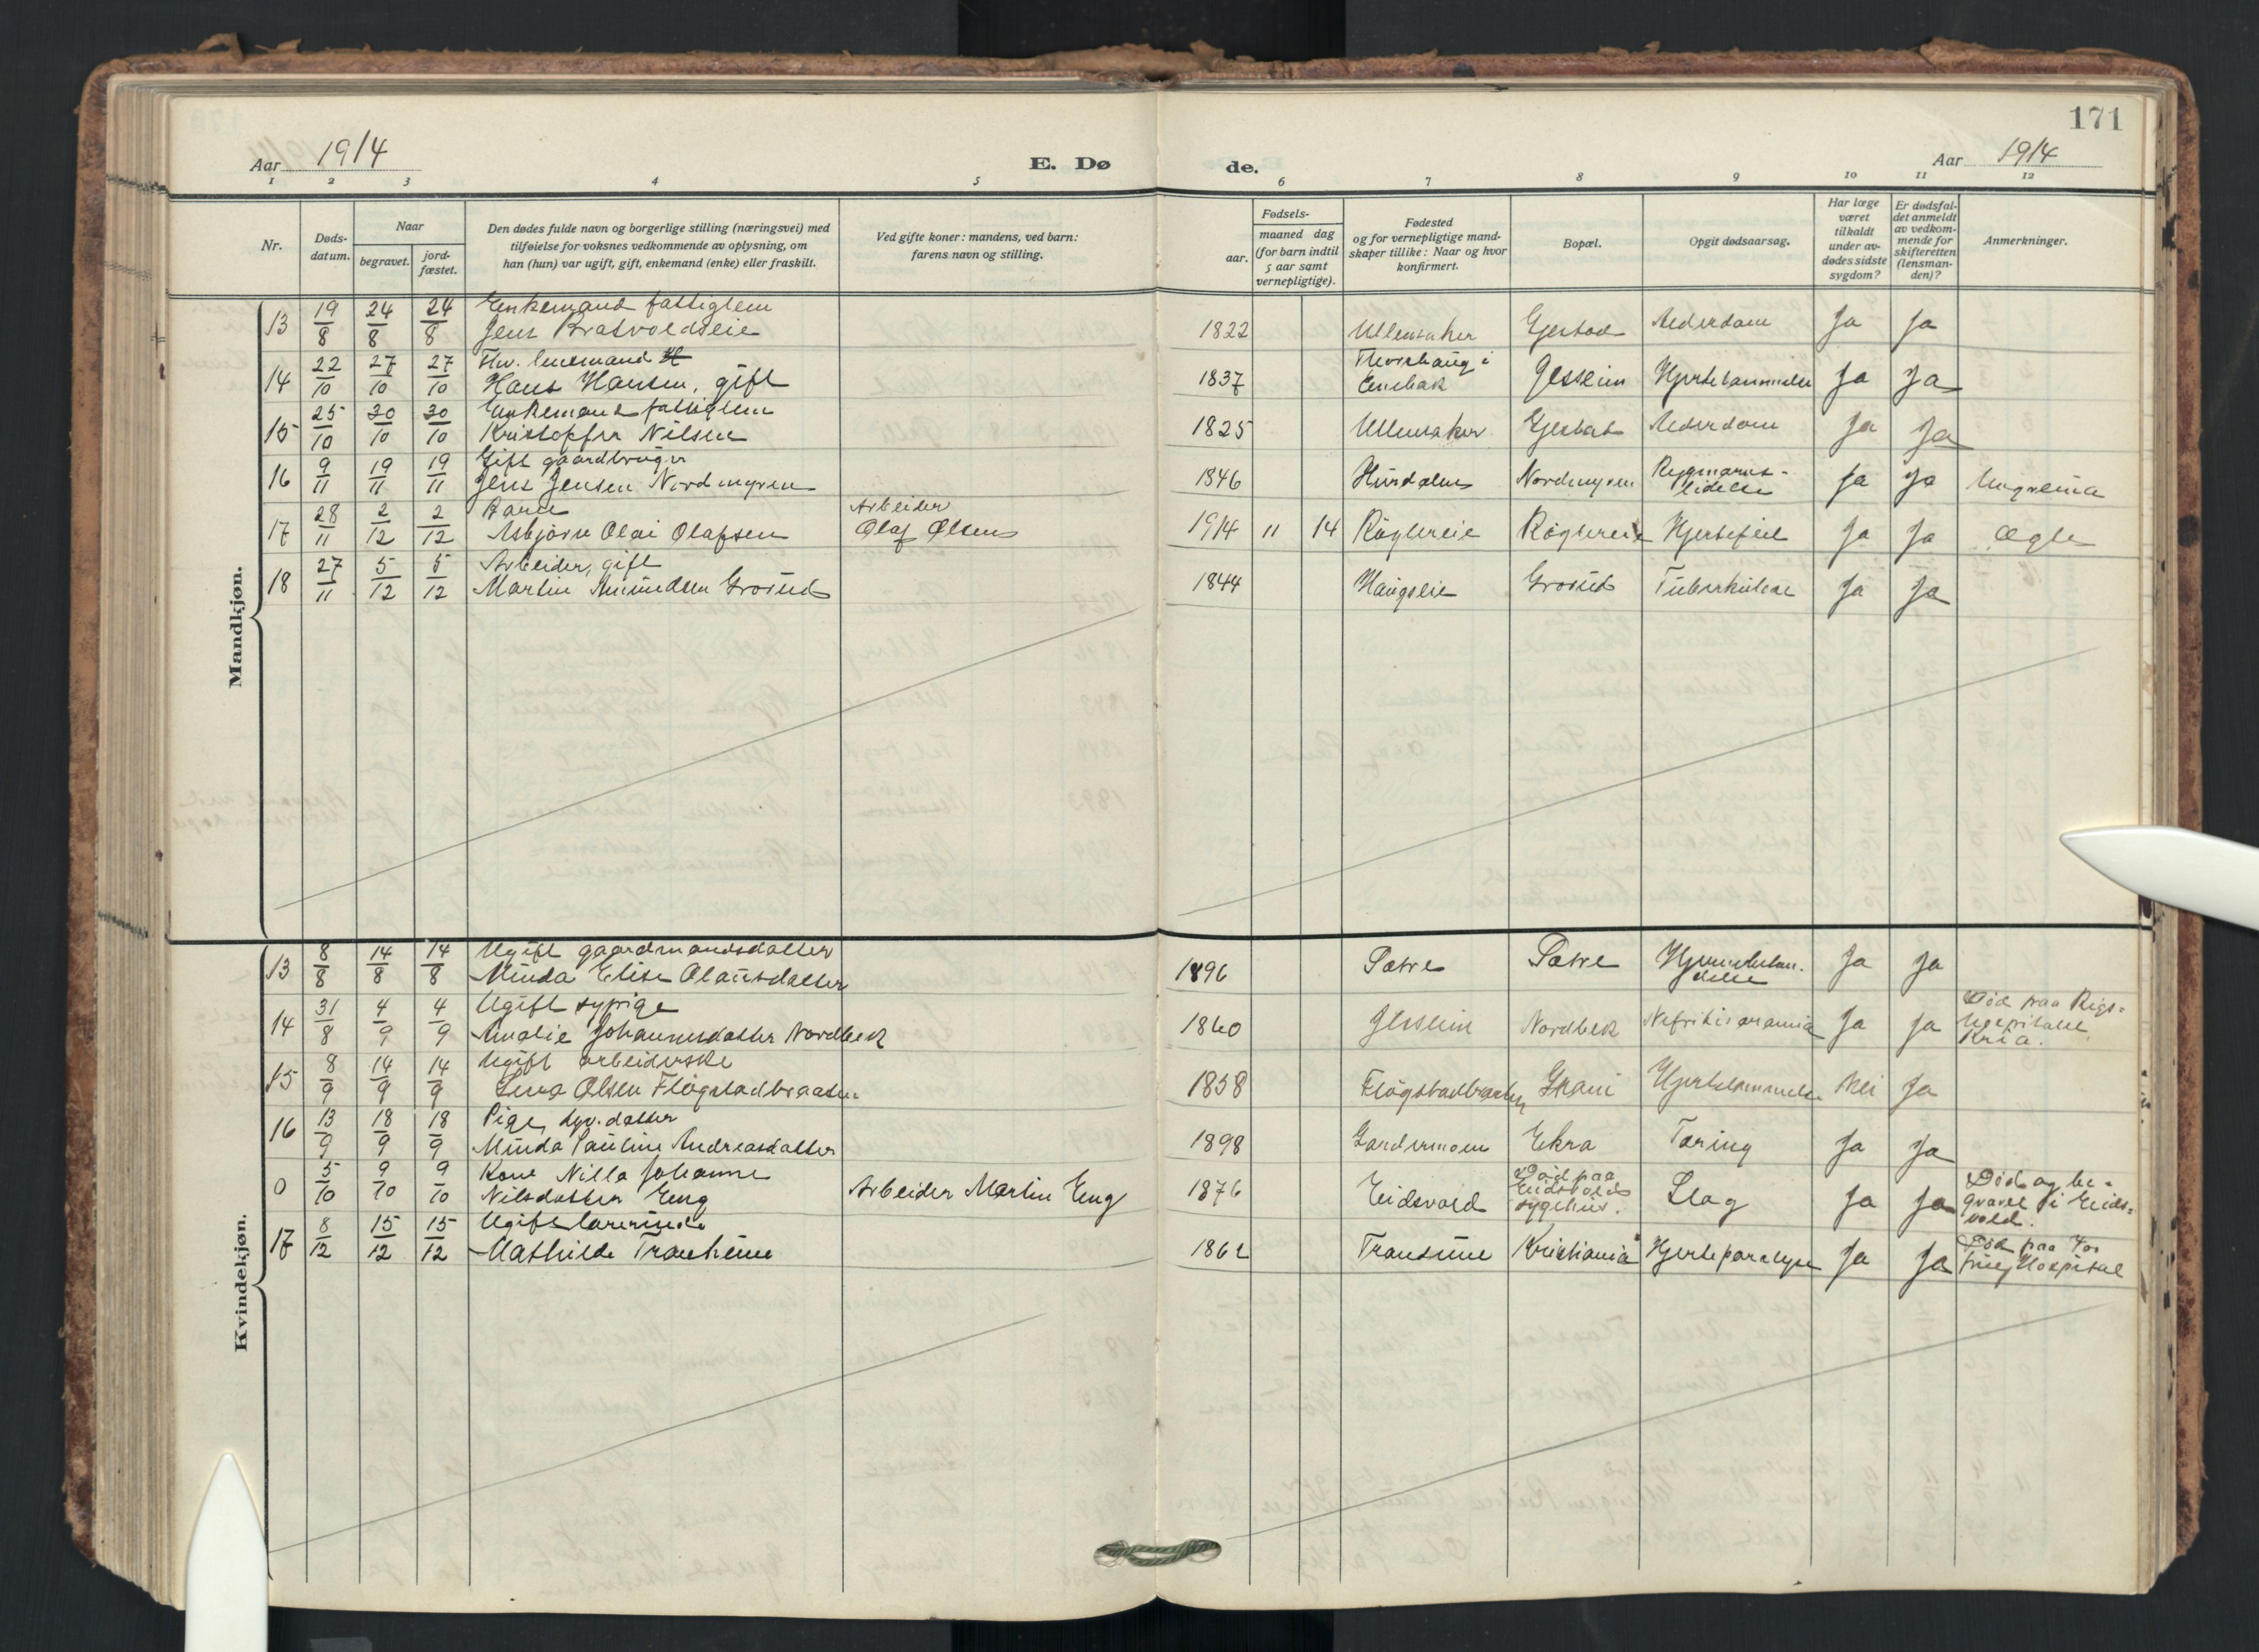 171
Aar 1914
E. Dø
de.
Aar 1914
1 2 3 4 5 6 7 8 9 10 11 12
Nr.
Døds-
datum.
Naar
begravet.
jord-
fæstet.
Den dødes fulde navn og borgerlige stilling (næringsvei) med
tilføielse for voksnes vedkommende av oplysning, om
han (hun) var ugift, gift, enkemand (enke) eller fraskilt.
Ved gifte koner: mandens, ved barn:
farens navn og stilling.
Fødsels-
aar.
maaned dag
(for barn indtil
5 aar samt
vernepligtige).
Fødested
og for vernepligtige mand-
skaper tillike: Naar og hvor
konfirmert.
Bopæl.
Opgit dødsaarsag.
Har læge
været
tilkaldt
under av-
dødes sidste
sygdom?
Er dødsfal-
det anmeldt
av vedkom-
mende for
skifteretten
(lensman-
den)?
Anmerkninger.
Mandkjøn.
13 19/8 24/8 24/8 Enkemand fattiglem
Jens Bratvoldseie 1822 Ullensaker Gjestad Alderdom Ja Ja
14 22/10 27/10 27/10 Fhv. lensmand
Hans Hansen, gift 1837 Thorshaug i
Enebak Jessheim Hjertelammelse Ja Ja
15 25/10 30/10 30/10 Enkemand fattiglem
Kristopfer Nilsen 1825 Ullensaker Gjestad Alderdom Ja Ja
16 9/11 19/11 19/11 Gift gaardbruger
Jens Jensen Nordmyren 1846 Hurdalen Nordmyren Rygmarvs-
lidelse Ja Ja
17 28/11 2/12 2/12 Barn Arbeider
Asbjørn Olai Olafsen Olaf Olsen 1914 11 14 Røglereie Røglereie Hjertefeil Ja Ja Ægte
18 27/11 5/12 5/12 Arbeider, gift
Martin Amundsen Grorud 1844 Haugseie Grorud Tuberkulose Ja Ja
Kvindekjøn.
13 8/8 14/8 14/8 Ugift gaardmandsdatter
Minda Elise Olausdatter 1896 Sætre Sætre Ja Ja
14 31/8 4/9 4/9 Ugift sypige
Amalie Johannesdatter Nordbek 1860 Jessheim Nordbek Ja Ja Død paa Rigs-
hospitalet,
Kr.ia.
15 8/9 14/9 14/9 Ugift arbeiderske
Lena Olsen Fløgstadbraaten 1858 Fløgstadbraaten Hjertelammelse Nei Ja
16 13/9 18/9 18/9 Pige, datter
Minda Pauline Andreasdatter 1898 Gardermoen Ekra Tæring Ja Ja
0 5/10 9/10 9/10 Kone Nilla Johanne
Nilsdatter Eng Arbeider Martin Eng 1876 Eidsvold Død paa
Eidsvolds
sygehus. Slag Ja Ja Død og be-
gravet i Eids-
vold.
17 8/12 15/12 15/12 Ugift lærerinde
Mathilde Tranheim 1862 Kristiania Hjerteparalyse Ja Ja Død paa Vor
frues Hospital